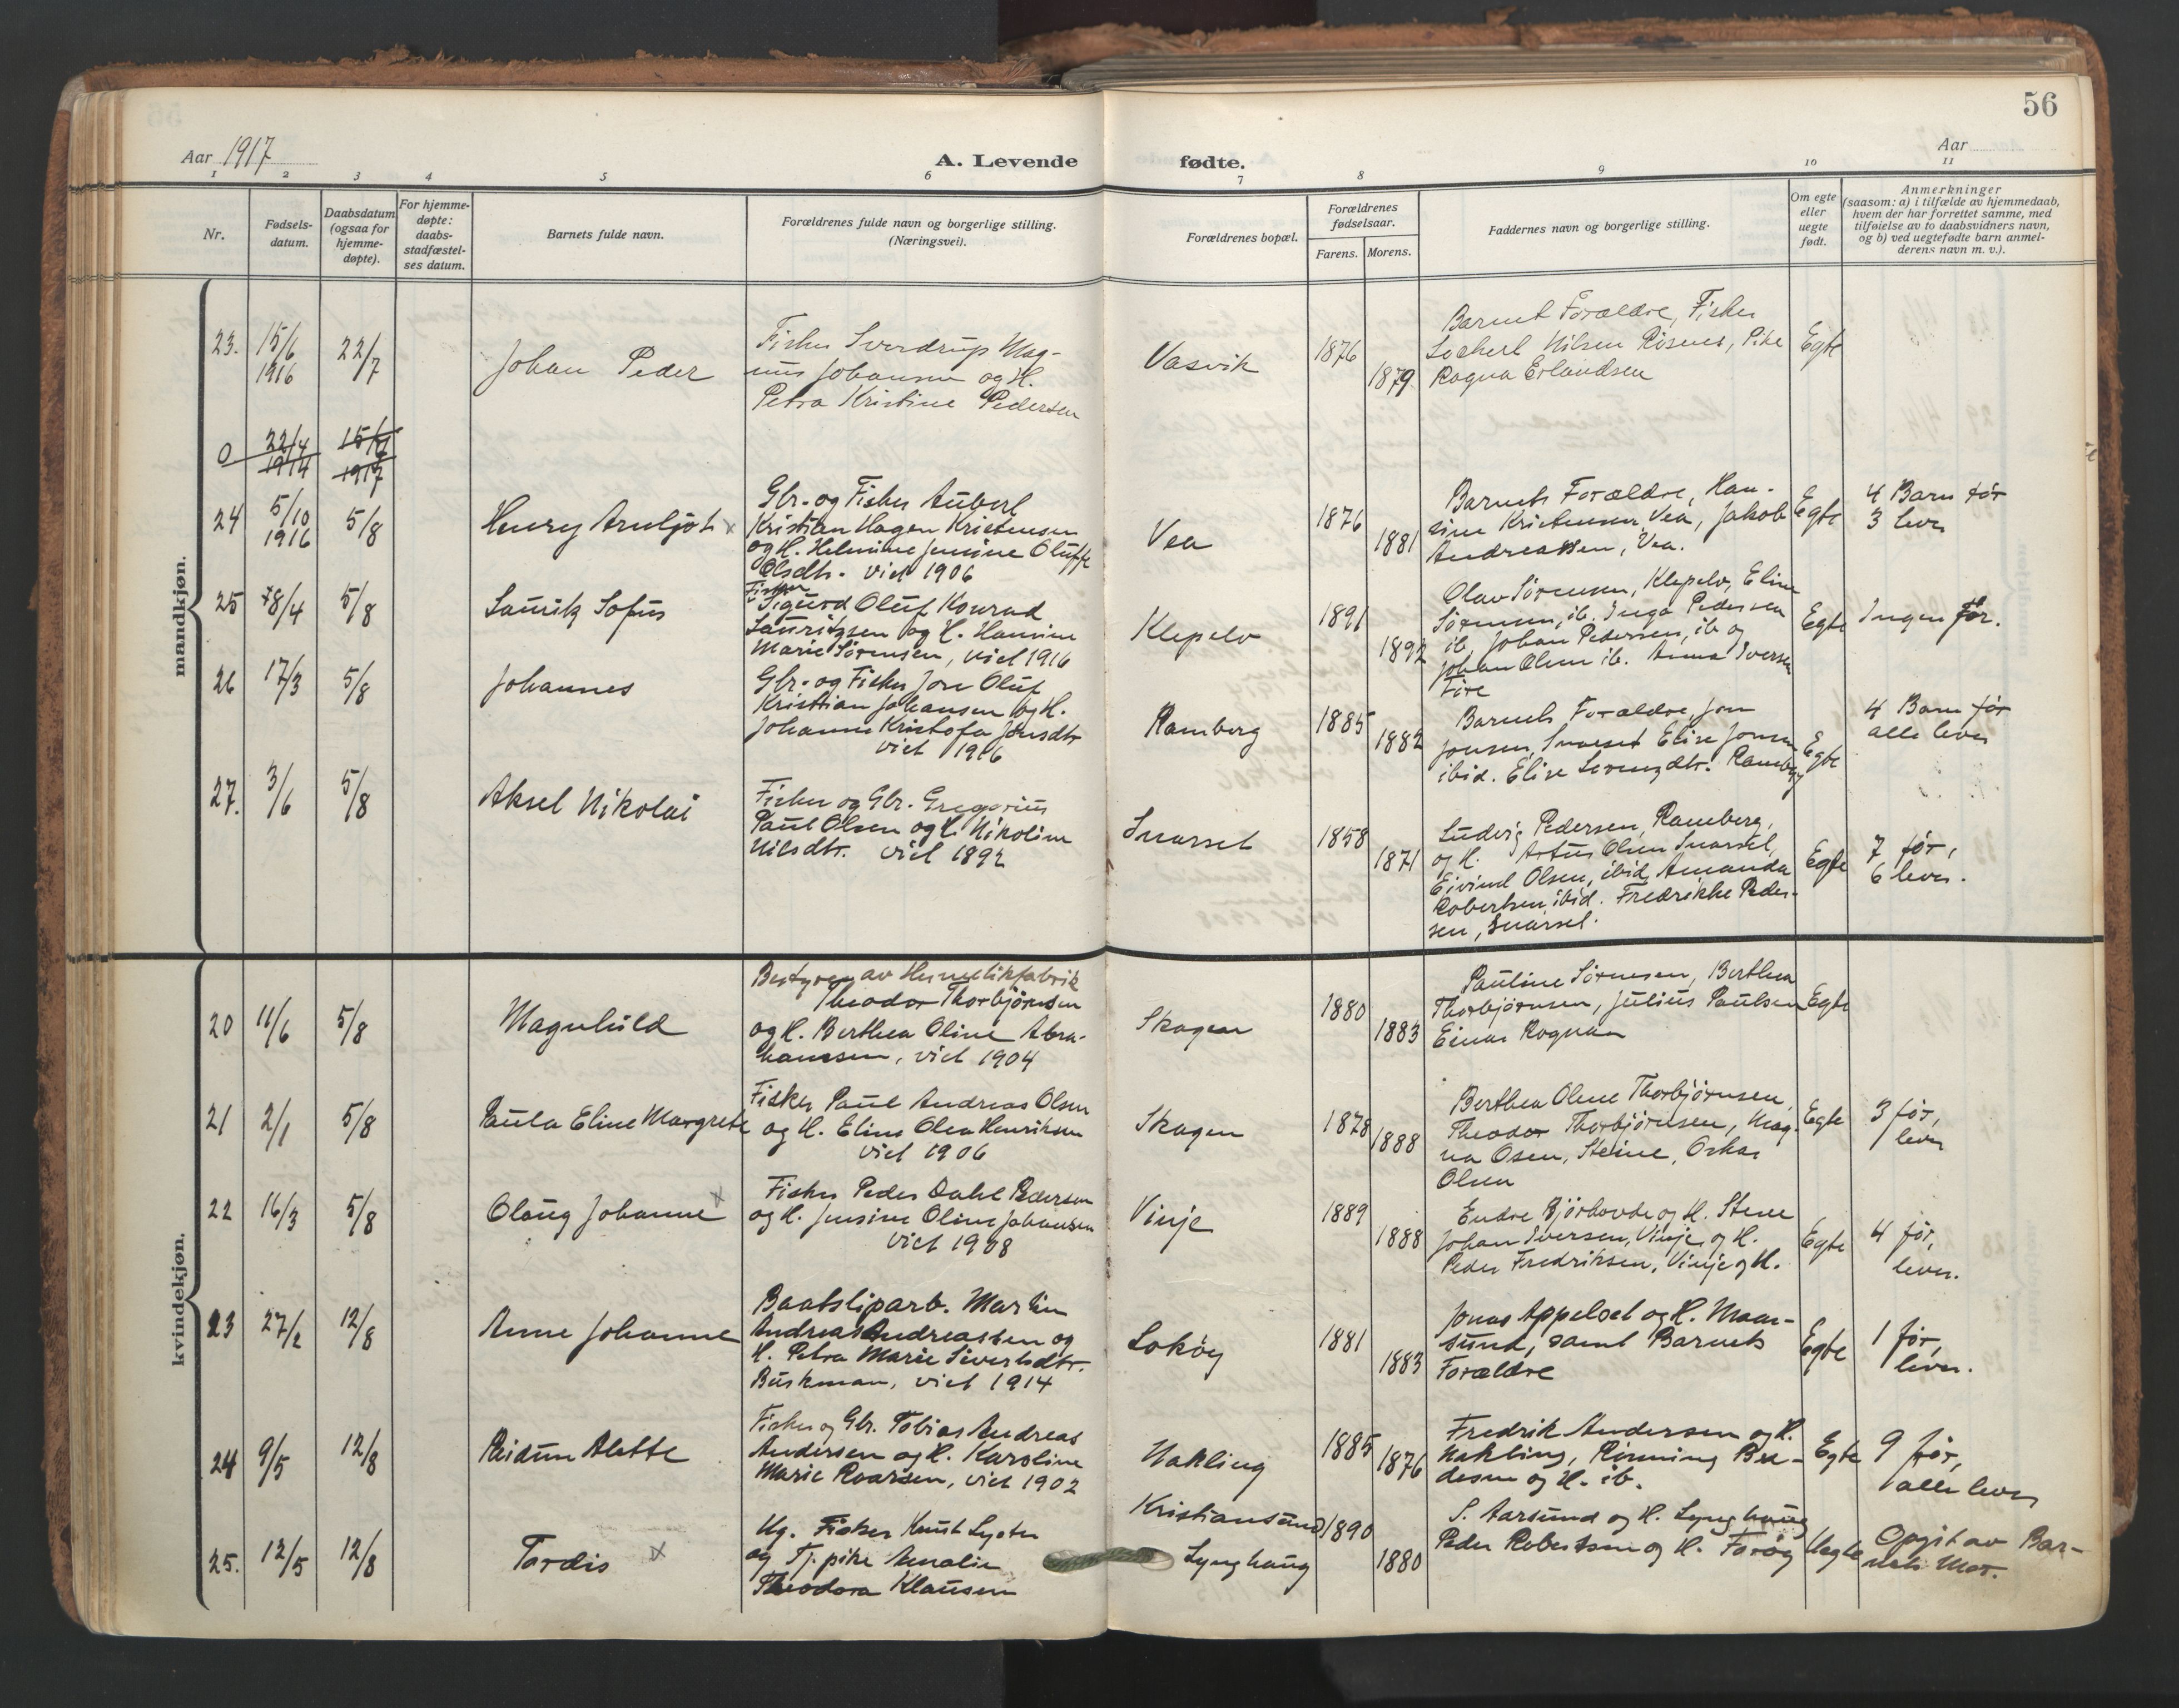 56
Aar 1917
A. Levende
fødte.
Aar
1 2 3 4 5 6 7 8 9 10 11
Nr.
Fødsels-
datum.
Daabsdatum
(ogsaa for
hjemme-
døpte).
For hjemme-
døpte:
daabs-
stadfæstel-
ses datum.
Barnets fulde navn.
Forældrenes fulde navn og borgerlige stilling.
(Næringsvei).
Forældrenes bopæl.
Forældrenes
fødselsaar.
Farens. Morens.
Faddernes navn og borgerlige stilling.
Om egte
eller
uegte
født.
Anmerkninger
(saasom: a) i tilfælde av hjemmedaab,
hvem der har forrettet samme, med
tilføielse av to daabsvidners navn,
og b) ved uegtefødte barn anmel-
derens navn m. v.).
mandkjøn.
23.
15/6
1916
22/7
Johan Peder
Fisker Sverdrup Mag-
nus Johansen og H.
Petra Kristine Pedersen
Vasvik
1876
1879
Barnets Forældre, Fisker
Lockert Nilsen Risnes, Pike
Ragna Erlandsen
Egte
0
22/4
1914
15/4
1917
24
5/10
1916
5/8
Henry Arnljot x
Gbr. og Fisker Aubert
Kristian Hagen Kristensen
og H. Helmine Jensine Oluffe
Olsdtr. viet 1906
Vea
1876
1881
Barnets Forældre, Han-
sine Kristensen Vea, Jakob
Andreassen, Vea.
Egte
4 Barn før
3 lever
25
8/4
5/8
Lauritz Sofus
Fisker
Sigurd Oluf Konrad
Lauritzsen og H. Hansine
Marie Sørensen, viet 1916
Klepelv
1891
1892
Olav Sørensen, Klepelv, Eline
Sørensen, ib. Inga Pedersen
ib, Johan Pedersen, ib og
Johan Olsen ib. Anna Iversen
Fire
Egte
Ingen før.
26
17/3
5/8
Johannes
Gbr. og Fisker Jon Oluf
Kristian Johansen og H.
Johanna Kristofa Jonsdtr
viet 1916
Ramberg
1885
1882
Barnets Forældre, Jon
Jonsen, Snarset Elise Jonsen
ibid. Elise Lorenzdtr. Ramberg
Egte
4 Barn før
alle lever
27.
3/6
5/8
Aksel Nikolai
Fisker og Gbr. Gregorius
Paul Olsen og H. Nikoline
Nilsdtr. viet 1892
Snarset
1858
1871
Ludvig Pedersen, Ramberg,
og H. Artur Olsen Snarset,
Eivind Olsen, ibid, Amanda
Robertsen ibid. Fredrikke Peder-
sen, Snarset.
Egte
7 før,
6 lever.
kvindekjøn.
20
11/6
5/8
Magnhild
Bestyrer av Hermetikfabrik
Theodor Thorbjørnsen
og H. Berthea Oline Abra-
hamsen, viet 1904
Skagen
1880
1883
Pauline Sørensen, Berthea
Thorbjørnsen, Julius Paulsen
Einar Rognan
Egte
21
2/1
5/8
Paula Eline Margrete
Fisker Paul Andreas Olsen
og H. Eline Olea Henriksen
viet 1906
Skagen
1878
1888
Berthea Oline Thorbjørnsen,
Theodor Thorbjørnsen, Mag-
na Osen, Steine, Oskar
Olsen
Egte
3 før,
lever
22
16/3
5/8
Olaug Johanne x
Fisker Peder Dahl Pedersen
og H. Jensine Oline Johansen
viet 1908
Vinje
1889
1888
Endre Bjørhovde og H. Stene
Johan Iversen, Vinje, og H.
Peder Fredriksen, Vinje og H.
Egte
4 før,
lever.
23
27/2
12/8
Anne Johanne
Baatsliparb. Martin
Andreas Andreassen og
H. Petra Marie Sivertsdtr.
Buskman, viet 1914
Lokøy
1881
1883
Jonas Appelset og H. Maar-
sund, samt Barnets
Forældre
Egte
1 før,
lever.
24
9/5
12/8
Reidun Alette
Fisker og Gbr. Tobias Andreas
Andersen og H. Karoline
Marie Roarsen, viet 1902
Nakling
1885
1876
Fredrik Andersen og H.
Nakling, Rønning Bre-
desen og H. ib.
Egte
9 før,
alle lever
25.
12/5
12/8
Tordis x
Ug. Fisker Knut Lyster
og Tj. pike Amalie
Theodora Klausen
Kristiansund
Lynghaug
1890
1880
S. Aarsund og H. Lynghaug
Peder Robertsen og H. Farøy
Uegte
Opgit av Bar-
nets Mor.